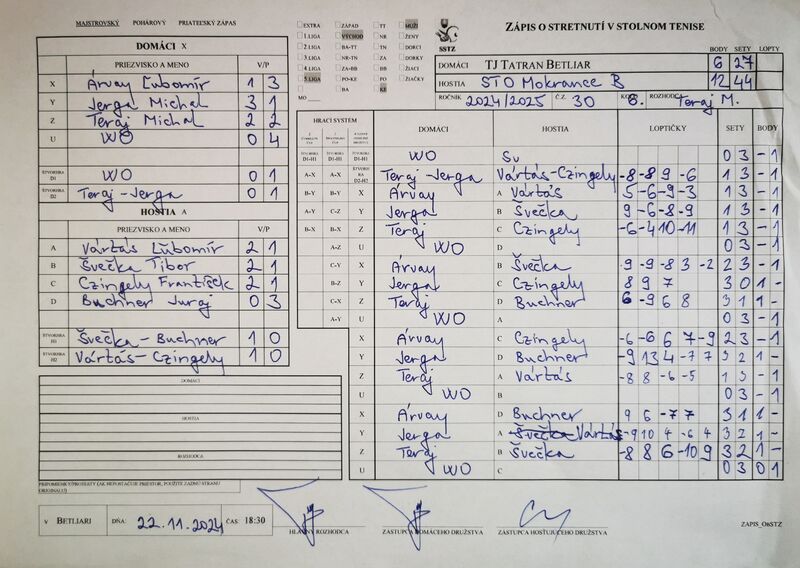 MAJSTROVSKÝ POHÁROVÝ PRIATEĽSKÝ ZÁPAS
EXTRA ZÁPAD TT MUŽI
1.LIGA VÝCHOD NR ŽENY
2.LIGA BA-TT TN DORCI
3.LIGA NR-TN ZA DORKY
4.LIGA ZA-BB BB ŽIACI
5.LIGA PO-KE PO ŽIAČKY
BA KE
MO
SSTZ
ZÁPIS O STRETNUTÍ V STOLNOM TENISE
BODY SETY LOPTY
DOMÁCI TJ TATRAN BETLIAR 6 27
HOSTIA STO Mokrance B 12 44
ROČNÍK 2024/2025 Č.Z. 30 KOLO 8. ROZHODCA Teraj M.
DOMÁCI X
PRIEZVISKO A MENO V/P
X Árvay Ľubomír 1 3
Y Jerga Michal 3 1
Z Teraj Michal 2 2
U WO 0 4
ŠTVORHRA D1 WO 0 1
ŠTVORHRA D2 Teraj-Jerga 0 1
HOSTIA A
PRIEZVISKO A MENO V/P
A Vártás Ľubomír 2 1
B Švečka Tibor 2 1
C Czingely František 2 1
D Buchner Juraj 0 3
ŠTVORHRA H1 Švečka-Buchner 1 0
ŠTVORHRA H2 Vártás-Czingely 1 0
HRACÍ SYSTÉM DOMÁCI HOSTIA LOPTIČKY SETY BODY
ŠTVORHRA D1-H1 ŠTVORHRA D1-H1 ŠTVORHRA D1-H1 WO Sv 0 3 - 1
A-X A-X ŠTVORHRA D2-H2 Teraj-Jerga Vártás-Czingely -8 -8 9 -6 1 3 - 1
B-Y B-Y X Árvay A Vártás 5 -6 -9 -3 1 3 - 1
A-Y C-Z Y Jerga B Švečka 9 -6 -8 -9 1 3 - 1
B-X B-X Z Teraj C Czingely -6 -4 10 -11 1 3 - 1
A-Z U WO D 0 3 - 1
C-Y X Árvay B Švečka -9 -9 -8 3 -2 2 3 - 1
B-Z Y Jerga C Czingely 8 9 7 3 0 1 -
C-X Z Teraj D Buchner 6 -9 6 8 3 1 1 -
A-Y U WO A 0 3 - 1
X Árvay C Czingely -6 -6 6 7 -9 2 3 - 1
Y Jerga D Buchner -9 13 4 -7 7 3 2 1 -
Z Teraj A Vártás -8 8 -6 -5 1 3 - 1
U WO B 0 3 - 1
X Árvay D Buchner 9 6 -7 7 3 1 1 -
Y Jerga A Švečka Vártás -9 10 4 -6 4 3 2 1 -
Z Teraj B Švečka -8 8 6 -10 9 3 2 1 -
U WO C 0 3 0 1
DOMÁCI
HOSTIA
ROZHODCA
PRIPOMIENKY/PROTESTY (AK NEPOSTAČUJE PRIESTOR, POUŽITE ZADNÚ STRANU ORIGINÁLU)
V BETLIARI DŇA: 22.11.2024 ČAS: 18:30
HLAVNÝ ROZHODCA ZÁSTUPCA DOMÁCEHO DRUŽSTVA ZÁSTUPCA HOSŤUJÚCEHO DRUŽSTVA
ZAPIS_OSSTZ